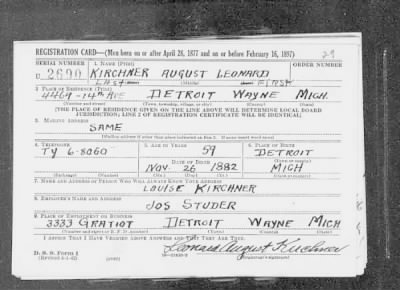 REGISTRATION CARD—(Men born on or after April 28, 1877 and on or before February 16, 1897) 29
SERIAL NUMBER 1. NAME (Print) ORDER NUMBER
U 2690 KIRCHNER AUGUST LEONARD
LAST FIRST
2. PLACE OF RESIDENCE (Print)
4469-14TH AVE DETROIT WAYNE MICH
(Number and street) (Town, township, village, or city) (County) (State)
[THE PLACE OF RESIDENCE GIVEN ON THE LINE ABOVE WILL DETERMINE LOCAL BOARD
JURISDICTION; LINE 2 OF REGISTRATION CERTIFICATE WILL BE IDENTICAL]
3. MAILING ADDRESS
SAME
[Mailing address if other than place indicated on line 2. If same insert word same]
4. TELEPHONE 5. AGE IN YEARS 6. PLACE OF BIRTH
TY 6-8060 59 DETROIT
DATE OF BIRTH
NOV. 26 1882 MICH
7. NAME AND ADDRESS OF PERSON WHO WILL ALWAYS KNOW YOUR ADDRESS
LOUISE KIRCHNER
8. EMPLOYER'S NAME AND ADDRESS
JOS STUDER
9. PLACE OF EMPLOYMENT OR BUSINESS
3333 GRATIOT DETROIT WAYNE MICH
(Number and street or R. F. D. number) (Town) (County) (State)
I AFFIRM THAT I HAVE VERIFIED ABOVE ANSWERS AND THAT THEY ARE TRUE.
D. S. S. Form 1 Leonard August Kirchner
(Revised 4-1-42) (over) (Registrant's signature)